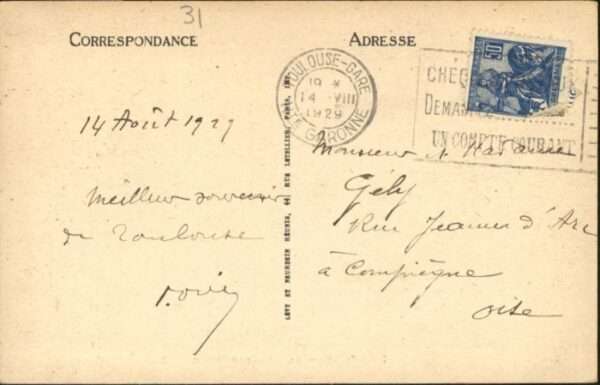 31
CORRESPONDANCE
ADRESSE
TOULOUSE-GARE
19
14 - VIII
1929
GARONNE
CHÈQ
DEMAN
UN COMPTE COURANT
14 Août 1929
Meilleur souvenir
de Toulouse
LÉVY ET NEURDEIN RÉUNIS, 44, RUE LETELLIER, PARIS, IMP.
Monsieur & Madame
Gély
Rue Jeanne d'Arc
à Compiègne
Oise